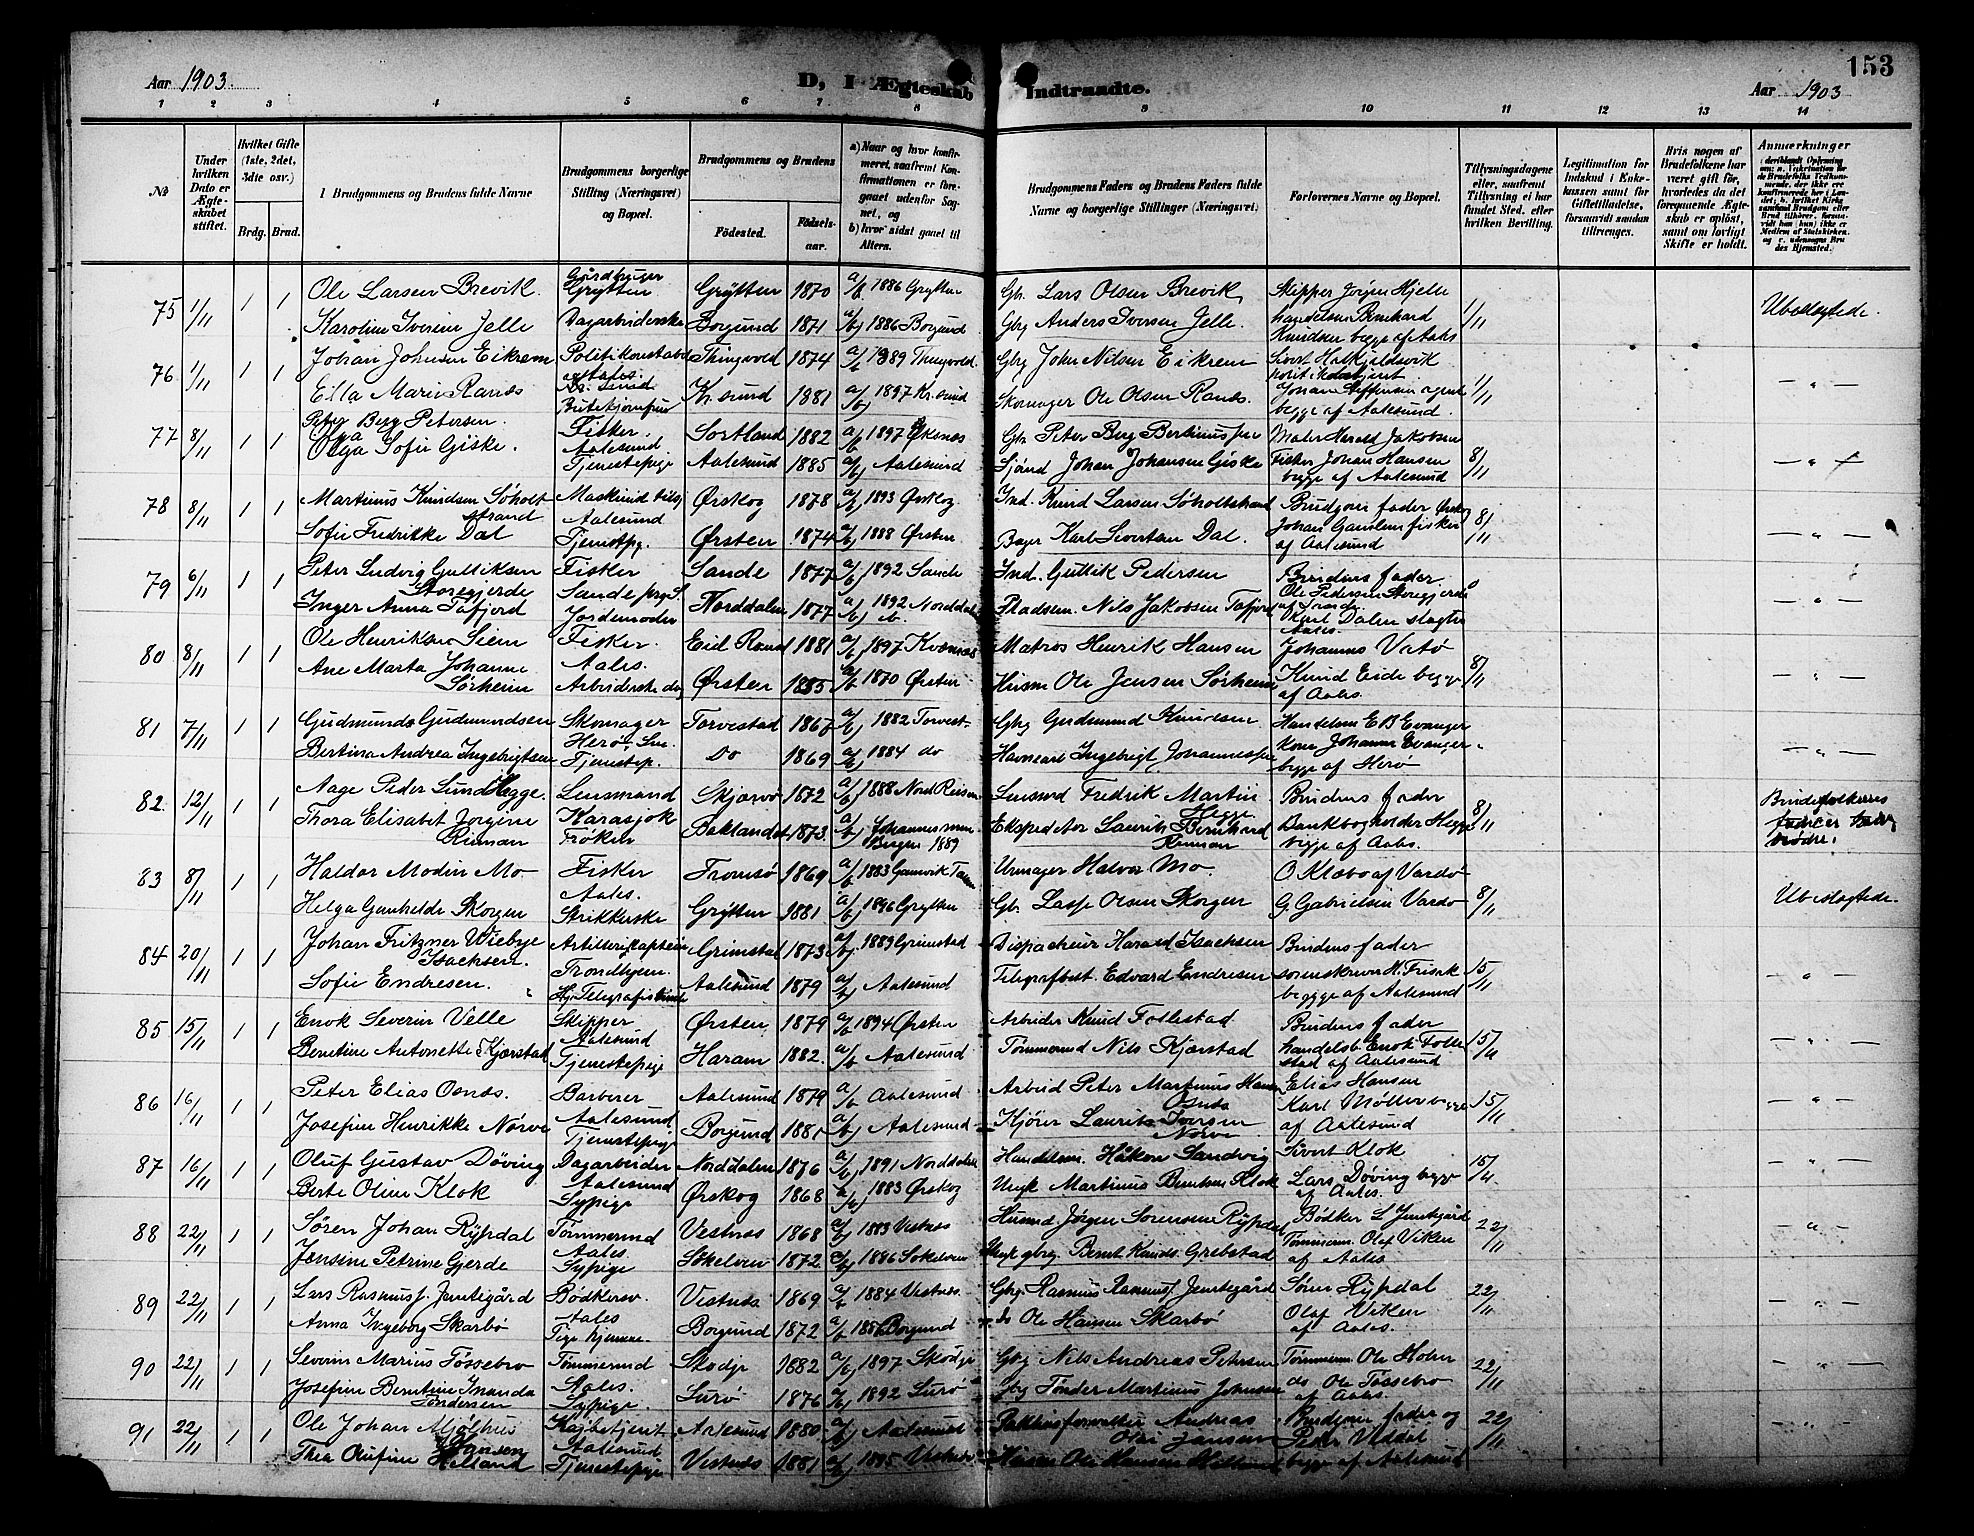 153
Aar 1903.
D, I Ægteskab Indtraadte.
Aar 1903
1 2 3 4 5 6 7 8 9 10 11 12 13 14
No
Under hvilken Dato er Ægteskabet stiftet.
Hvilket Gifte (1ste, 2det, 3die osv.)
Brdg. Brud.
I Brudgommens og Brudens fulde Navne
Brudgommens borgerlige Stilling (Næringsvei) og Bopæl.
Brudgommens og Brudens
Fødested. Fødselsaar.
a) Naar og hvor konfirmeret, saafremt Konfirmationen er foregaaet udenfor Sognet, og
b) hvor sidst gaaet til Alters.
Brudgommens Faders og Brudens Faders fulde Navne og borgerlige Stillinger (Næringsvei)
Forlovernes Navne og Bopæl.
Tillysningsdagene eller, saafremt Tillysning ei har fundet Sted, efter hvilken Bevilling.
Legitimation for Indskud i Enkekassen samt for Giftetilladelse, forsaavidt saadan tiltrænges.
Hvis nogen af Brudefolkene har været gift før, hvorledes da det foregaaende Ægteskab er opløst, samt om lovligt Skifte er holdt.
Anmærkninger
75 1/11 1 1 Ole Larsen Brevik. Gårdbruger Grytten Grytten 1870 a/b 1886 Grytten Gb. Lars Olsen Brevik, Skipper Jørgen Hjelle 1/11 Ubeslegtede.
Karoline Iverine Jelle Dagarbeiderske Borgund 1871 a/b 1886 Borgund Gbg Anders Iversen Jelle. Handelsm Bernhard Knudsen begge af Aales
76 1/11 1 1 Johan Johnsen Eikrem Politikonstabel Aales. Thingvold 1874 a/b 1889 Thingvold Gbg John Nilsen Eikrem Sivert Halkjeldsvik 1/11 - " -
Ella Marie Ranes Kr. sund Butikjomfru Kr. sund 1881 a/b 1897 Kr. sund Skomager Ole Olsen Ranes. Johan Steffensen agent begge af Aalesund.
77 8/11 1 1 Peter Berg Petersen. Fisker. Aalesund Sortland 1882 a/b 1897 Øksnes Gb. Peter Berg Maler Harald Jakobsen 8/11 - " -
Olga Sofie Giske. Tjenestepige Aalesund 1885 a/b Aalesund Johan Johansen Giske Fisker Johan Hansen begge af Aalesund
78 8/11 1 1 Martinus Knudsen Søholtstrand Aalesund Ørskog 1878 a/b 1893 Ørskog Ind. Knud Larsen Søholtstrand Brudgoms fader 8/11 - " -
Sofie Fredrikke Dal Tjenestpg. Ørsten 1874 a/b 1888 Ørsten Karl Sivertsen Dal. Johan fisker af Aalesund
79 6/11 1 1 Peter Ludvig Guttiksen Storegjerde Fisker Sande 1877 a/b 1892 Sande Ind. Guttik Pedersen Brudens fader. - " -
Inger Anna Tafjord Jordemoder Norddalen 1877 a/b 1892 Norddal Pladsem. Nils Jakobsen Tafjord Ole Pedersen Storegjerde Karl Dalen slagter Aales.
80 8/11 1 1 Ole Henriksen Siem Fisker. Aales. Eid Romsd 1881 a/b 1897 Kvernæs Matros Henrik Hansen Johannes Vatø 8/11 - " -
Ane Marta Johanne Sørheim Arbeiderske Ørsten 1885 a/b 1870 Ørsten Husm Ole Jensen Sørheim Knud Eide begge af Aales.
81 7/11 1 1 Gudmunds Gudmundsen Skomager Herø Torvestad 1867 a/b 1882 Torvest- Gbg Gudmund Knudsen Handelsm E B Evanger - " -
Bertina Andrea Ingebrigtsen Tjenestep. Do 1869 a/b 1884 do Ingebrigt Johannessen Johanne Evanger begge af Herø
82 12/11 1 1 Aage Peder Lund Hegge. Lensmand Karasjok Skjærvø 1872 a/b 1888 Nord Reisen Lensmd Fredrik Martin Hegge Brudens fader 8/11 Brudefolkenes er brødre.
Thora Elisabet Jørgine Rinnan Frøken Baklandet 1873 a/b Johannes men Bergen 1889 Ekspeditør Laurits Bernhard Rinnan Bankbogholder Hegge begge af Aales.
83 8/11 1 1 Haldor Modin Mo Fisker Aales. Tromsø 1869 a/b 1883 Gamvik Urmager Halvor Mo. O Klæbo af Vardø 8/11 Ubeslegtede.
Helga Gunhelde Skorgen Strikkerske Grytten 1881 a/b 1896 Grytten Gb. Lasse Olsen Skorgen G. Gabrielsen Vardø
84 20/11 1 1 Johan Fritzner Wiebye Isachsen. Artillerikaptein Trondhjem. Grimstad 1873 a/b 1889 Grimstad Dispacheur Harald Isachsen Brudens fader 15/11 - " -
Sofie Endresen. Aalesund 1879 a/b Aalesund Telegrafbest. Edvard Endresen sorenskriver H. Frisak begge af Aalesund
85 15/11 1 1 Enok Severin Velle Skipper Aalesund Ørsten 1879 a/b 1894 Ørsten Arbeider Knud Follestad Brudens fader 15/11 - " -
Berntine Antonette Kjerstad Tjenestepige Haram 1882. a/b Aalesund Tømmermd Nils Kjerstad handelsb. Enok Follestad af Aalesund
86 16/11 1 1 Peter Elias Osnes. Barberer Aalesund Aalesund 1879 a/b Aalesund Arbeid Peter Martinus Hansen Osnes Elias Hansen 15/11 - " -
Josefine Henrikke Nørve Tjenestepige Borgund 1881 a/b Aalesund Kjører Laurits Iversen Nørve Karl Møller begge af Aalesund
87 16/11 1 1 Oluf Gustav Døving Dagarbeider Aalesund Norddalen 1876 a/b 1891 Norddalen Handelsm. Håkon Sandvig Sivert Klok 15/11 - " -
Berte Oline Klok Sypige Ørskog 1868 a/b 1883 Ørskog Martinus Berntsen Klok Lars Døving begge af Aales.
88 22/11 1 1 Søren Johan Rypdal Tømmermd Aales. Vestnes 1868 a/b 1883 Vestnes Husmd Jørgen Sorensen Rypdal Bødker L Jenstegård 22/11 - " -
Jensine Petrine Gjerde Sypige Søkelven 1872 a/b 1886 Søkelven Bernt Knuds. Grebstad Tømmerm. Olaf Viken af Aales
89 22/11 1 1 Lars Rasmuss. Jenstegård Bødkersv. Aales Vestnes 1869 a/b 1884 Vestnes. Gbg Rasmus Rasmuss. Jenstegård Søren Rypdal 22/11 - " -
Anna Ingeborg Skarbø Pige hjemme. Borgund 1872 a/b 1886 Borgund do Ole Hansen Skarbø Olaf Viken af Aales.
90 22/11 1 1 Severin Marius Tøssebro Tømmermd Aales. Skodje 1882 a/b 1897 Skodje Gbg Nils Andreas Petersen Tømmerm. Ole Holen 22/11 - " -
Josefine Berntine Tøndersen Sypige Surø 1876 a/b 1892 Surø Gbg Tønder Martinus Johnsen do Ole Tøssebro af Aales.
91 22/11 1 1 Ole Johan Mjølhus Jansen Aalesund Aalesund 1880 a/b Aalesund Pakhusforvalter Andreas Olai Jansen Brudgoms fader og 22/11 - " -
Thea Olufine Helland Tjenestepige Vestnes 1881 a/b 1895 Vestnes Husm Ole Hansen Helland Peder Uddal begge af Aalesund